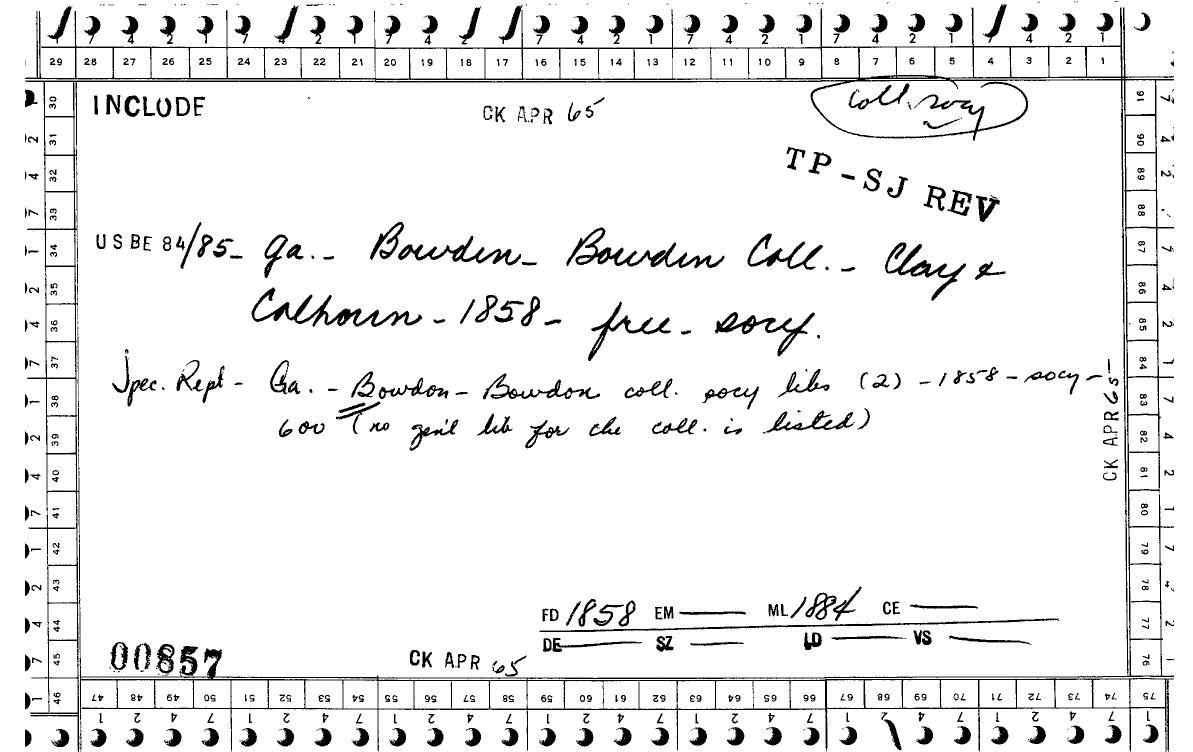 7 4 2 1 7 4 2 1 7 4 2 1 7 4 2 1 7 4 2 1 7 4 2 1
29 28 27 26 25 24 23 22 21 20 19 18 17 16 15 14 13 12 11 10 9 8 7 6 5 4 3 2 1
INCLUDE CK APR 65 coll. socy
TP-SJ REV
USBE 84/85- Ga. - Bowden - Bowden Coll. - Clay &
Calhoun - 1858 - free - socy.
Spec. Rept - Ga. - Bowdon - Bowdon coll. socy libs (2) - 1858 - socy -
600 (no gen'l lib for the coll. is listed)
CK APR 65
FD 1858 EM — ML 1884 CE —
DE — SZ — LD — VS —
00857 CK APR 65
30 31 32 33 34 35 36 37 38 39 40 41 42 43 44 45 46
91 90 89 88 87 86 85 84 83 82 81 80 79 78 77 76
47 48 49 50 51 52 53 54 55 56 57 58 59 60 61 62 63 64 65 66 67 68 69 70 71 72 73 74 75
1 2 4 7 1 2 4 7 1 2 4 7 1 2 4 7 1 2 4 7 1 2 4 7 1 2 4 7 1